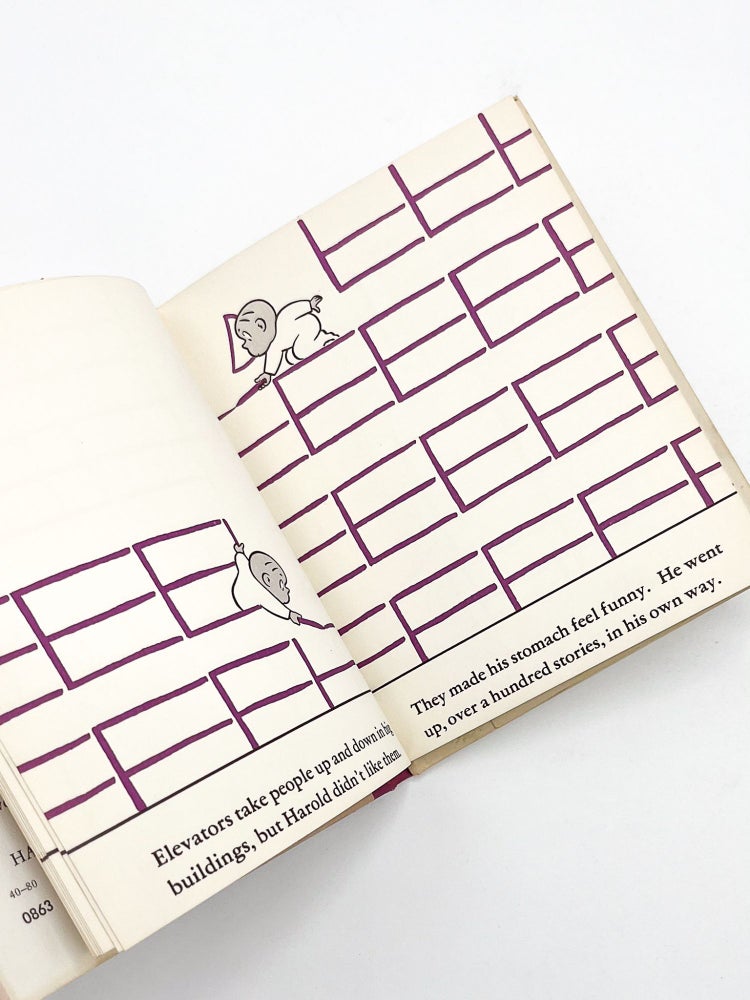 Elevators take people up and down in big
buildings, but Harold didn't like them.
They made his stomach feel funny. He went
up, over a hundred stories, in his own way.
HA
40–80
0863